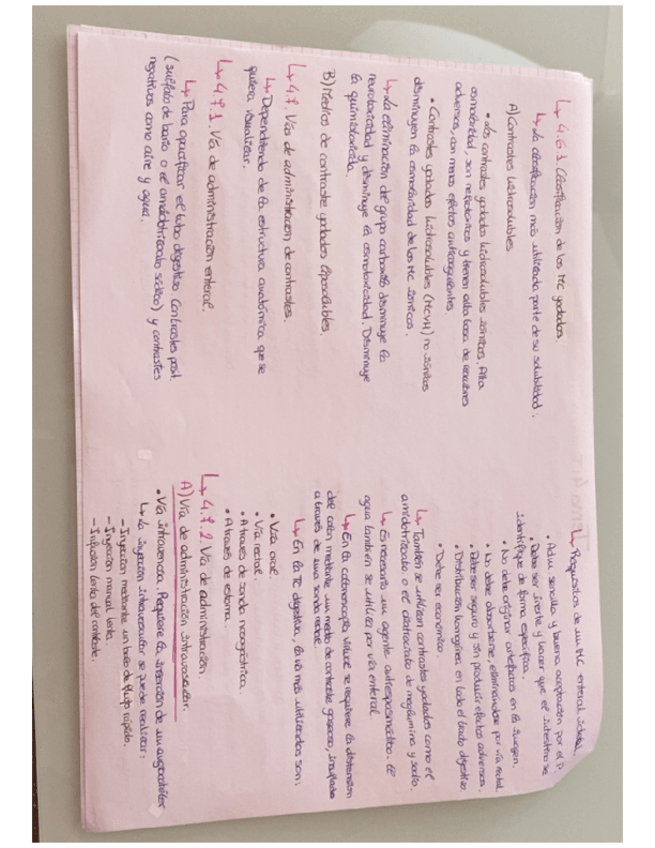 ↳ 4.6.3. Clasificación de los MC yodados.
↳ La clasificación más utilizada parte de su solubilidad.
A) Contrastes hidrosolubles
• Los contrastes yodados hidrosolubles iónicos. Alta
osmolaridad, son nefrotóxicos y tienen alta tasa de reacciones
adversas, con menos efectos anticoagulantes.
• Contrastes yodados hidrosolubles (MCYH) no iónicos
disminuyen la osmolaridad de los MC iónicos.
↳ La eliminación del grupo carboxilo disminuye la
neurotoxicidad y disminuye la osmotoxicidad. Disminuye
la quimiotoxicida.
B) Medios de contraste yodados liposolubles.
↳ 4.7. Vías de administración de contrastes.
↳ Dependiendo de la estructura anatómica que se
quiera visualizar.
↳ 4.7.1. Vía de administración enteral.
↳ Para opacificar el tubo digestivo contrastes posit.
(sulfato de bario o el amidotrizoato sódico) y contrastes
negativos como aire y agua.
↳ Requisitos de un MC enteral
• Adm sencilla y buena aceptación por el P.
• Debe ser inerte y hacer que el intestino se
identifique de forma específica.
• No debe originar artefactos en la imagen.
• No debe absorberse eliminándose por vía rectal
• Debe ser seguro y sin producir efectos adversos.
• Distribución homogénea en todo el tracto digestivo
• Debe ser económico.
↳ También se utilizan contrastes yodados como el
amidotrizoato o el diatrizoato de meglumina y sodio.
↳ Es necesario un agente antiespasmódico. El
agua también se utiliza por vía enteral.
↳ En la colonoscopia virtual se requiere la distensión
del colon mediante un medio de contraste gaseoso, insuflado
a través de una sonda rectal.
↳ En la TC digestiva, la vía más utilizadas son:
• Vía oral.
• Vía rectal.
• A través de sonda nasogástrica.
• A través de estoma.
↳ 4.7.2. Vía de administración.
A) Vía de administración intravascular.
• Vía intravenosa. Requiere la inserción de un angiocatéter
↳ La inyección intravascular se puede realizar:
- Inyección mediante un bolo de flujo rápido.
- Inyección manual lenta.
- Infusión lenta del contraste.